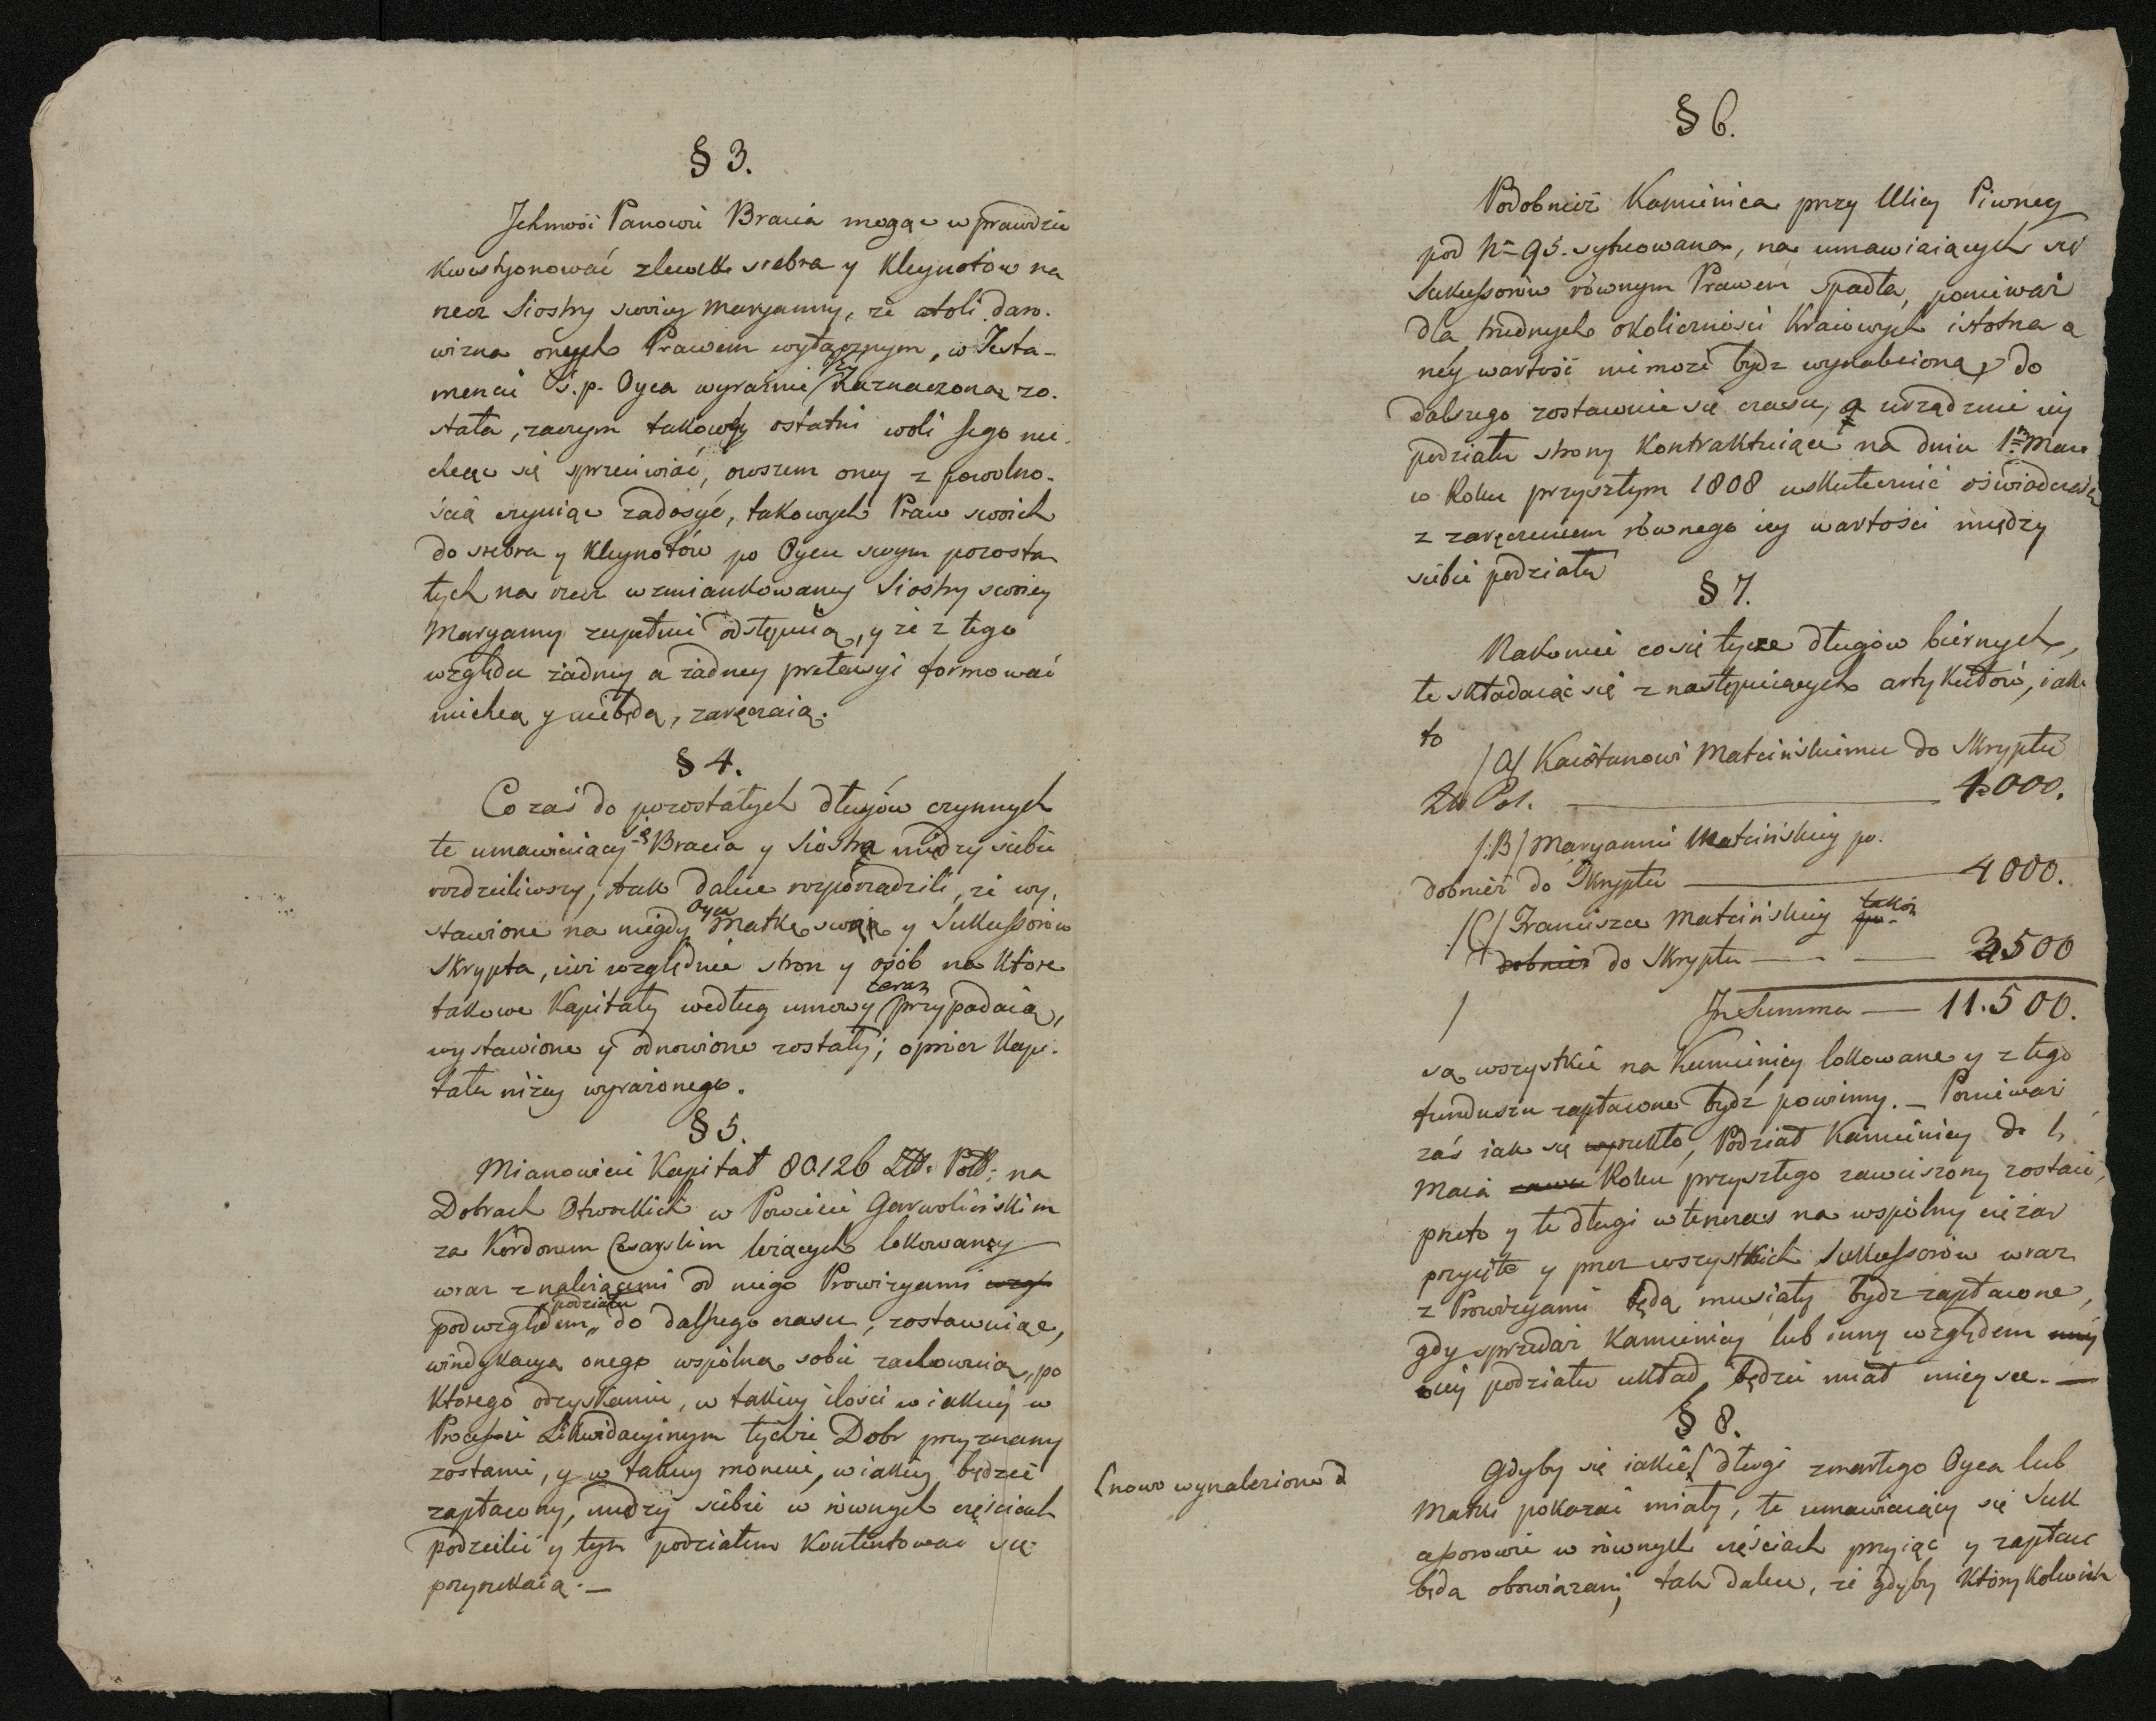 § 3.
Jchmość Panowie Bracia mogąc wprawdzie
kwestyonować zlewek srebra y Kleynotów na
rzecz Siostry swoiey Maryanny, że atoli daro-
wizna onych Prawem wyłącznym, w Testa-
mencie ś. p. Oyca wyraźnie naznaczona zo-
stała, zaczym takowey ostatni woli Jego nie
chcąc się sprzeciwiać, owszem oney z powolno-
ścią czyniąc zadosyć, takowych Praw swoich
do srebra y Kleynotów po Oycu swym pozosta
łych na rzecz wzmiankowaney Siostry swoiey
Maryanny zupełnie odstępuią, y że z tego
względu żadney a żadney pretensyi formować
niechcą y niebędą, zaręczaią.
§ 4.
Co zaś do pozostałych długów czynnych
te umawiaiący się Bracia y Siostra między siebie
rozdzieliwszy, tak dalece rozporządzili, że wy-
stawione na niegdy Oyca Matkę swoię y Sukcessorów
Skrypta, iuż względnie stron y osób na które
takowe Kapitały według umowy teraz przypadaią,
wystawione y odnowione zostały; oprócz Kapi-
tału niżey wyrażonego.
§ 5.
Mianowicie Kapitał 80126 Złł: Poll: na
Dobrach Otwockich w Powiecie Garwolińskim
za Kordonem Cesarskim leżących lokowany
wraz z należącemi od niego Prowizyami
podwzględem podziału do dalszego czasu, zostawuiąc,
windykacya onego wspólna sobie zachowuią, po
którego odzyskaniu, w takiey ilości w iakiey w
Processie Likwidacyinym tychże Dobr przyznany
zostanie, y w takiey monecie, w iakiey będzie
zapłacony, między siebie w równych częściach
podzielić y tym podziałem kontentować się
przyrzekaią. —
§ 6.
Podobnież Kamienica przy Ulicy Piwney
pod No 95. sytuowana, na umawiaiących się
Sukcessorów równym Prawem spadła, ponieważ
dla trudnych okoliczności Kraiowych istotna o
ney wartość nie może bydz wynaleziona, do
dalszego zostawuie się czasu, a urządzenie iey
podziału strony Kontraktuiące na dniu 1m Maia
w Roku przyszłym 1808 uskutecznić oświadczaią
z zaręczeniem równego iey wartości między
siebie podziału
§ 7.
Nakoniec co się tycze długów biernych,
te składaiąc się z następuiących artykułów, iako
to
/A/ Kaietanowi Matcińskiemu do Skryptu
Złł Pol. — 4000.
/:B/ Maryannie Matcińskiey po-
dobnież do Skryptu — 4000.
/C/ Franciszce Matcińskiey po- takoż
dobnież do Skryptu — — 3500
/ In Summa — 11.500.
są wszystkie na Kamienicy lokowane y z tego
funduszu zapłacone bydź powinny. — Ponieważ
zaś iak się rzekło, Podział Kamienicy do 1
Maia Roku przyszłego zawieszony zostaie,
przeto y te długi wtenczas na wspólny ciężar
przyięte y przez wszystkich Sukcessorów wraz
z Prowizyami będą musiały bydz zapłacone,
gdy sprzedaż Kamienicy lub inny względem
iey podziału układ będzie miał mieysce. —
§ 8.
Gdyby się iakie długi zmarłego Oyca lub
(nowo wynalezione
Matki pokazać miały, te umawiaiący się Suk
cessorowie w równych częściach przyiąć y zapłacić
będą obowiązani, tak dalece, że gdyby którykolwiek